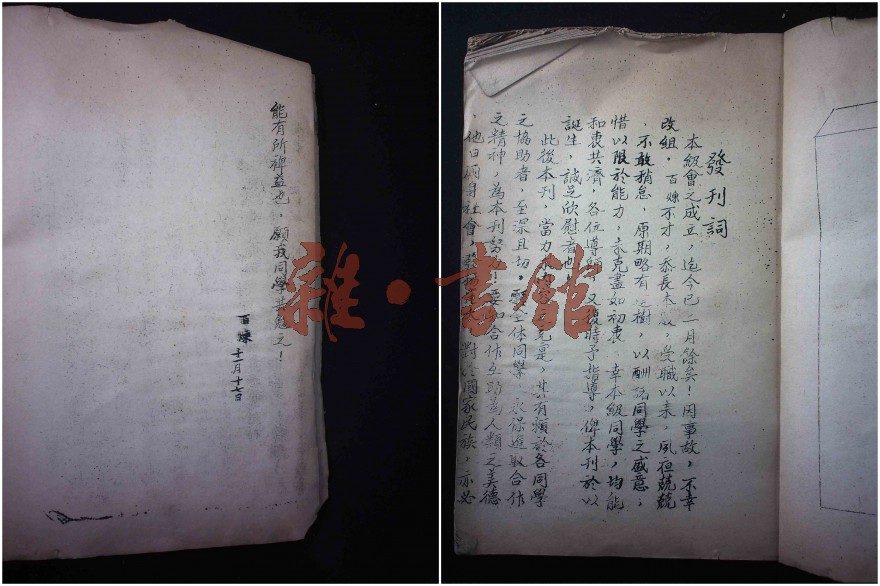 發刊詞
本級會之成立，迄今已二月餘矣！因事故，不幸
改組，百煉不才，忝長本，受職以來，夙夜兢兢
，不敢稍怠，原期略有樹，以酬諸同學之盛意，
惜以限於能力，未克盡如初衷 幸本級同學，均能
和衷共濟，各位導師 又復時予指導，俾本刊於以
誕生，誠足欣慰者也
此後本刊，當力 是，其有賴於各同學
之協助者，至深且切，願全体同學 永保進取合作
之精神，為本刊努力！要知合作互助為人類之美德
，他日 身社會， 對於國家民族，亦必
能有所裨益也，願我同學共勉之！
百煉 十一月十七日
雜·書館